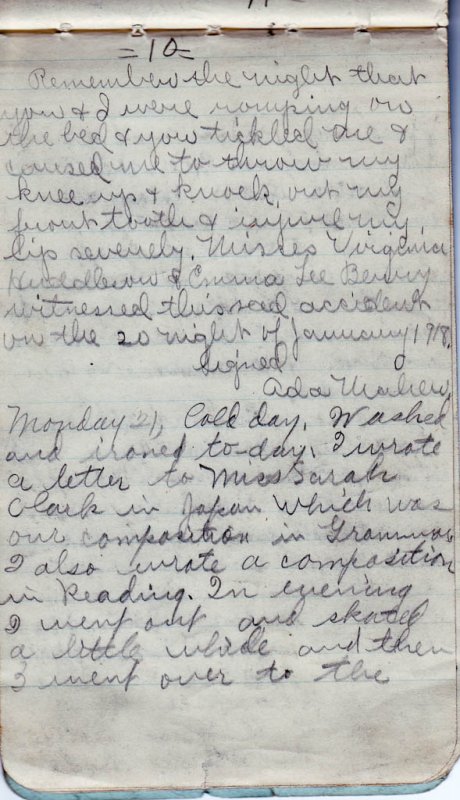 =10=
Remember the night that
you & I were romping on
the bed & you tickled me &
caused me to throw my
knee up & knock out my
front tooth & injure my
lip severely. Misses Virginia
Huddleson & Emma Lee Berry
witnessed this sad accident
on the 20 night of January 1918.
Signed
Ada
Monday 21, Cold day. Washed
and ironed to-day. I wrote
a letter to Miss Sarah
Clark in Japan which was
our composition in Grammar
I also wrote a composition
in Reading. In evening
I went out and skated
a little while and then
I went over to the